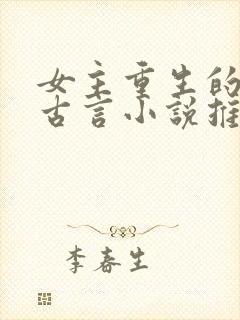 女主重生的
古言小说推
李春生